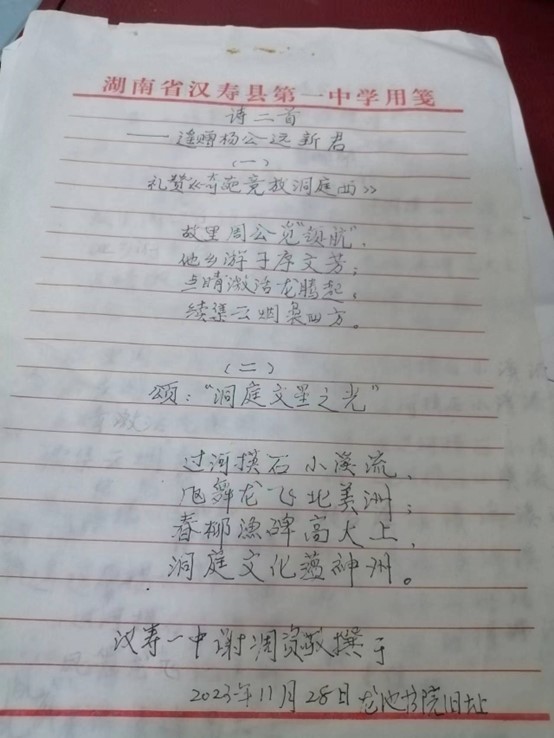 湖南省汉寿县第一中学用笺
诗二首
——遥赠杨公远新君
(一)
礼赞《奇葩竞放洞庭西》
故里周公览"领航",
他乡游子序文芳;
点睛激活龙腾起,
续集云烟袅四方。
(二)
颂:"洞庭文星之光"
过河摸石小溪流,
凤舞龙飞北美洲;
春柳渔碑高大上,
洞庭文化蕴神州。
汉寿一中谢润资敬撰于
2023年11月28日龙池书院旧址